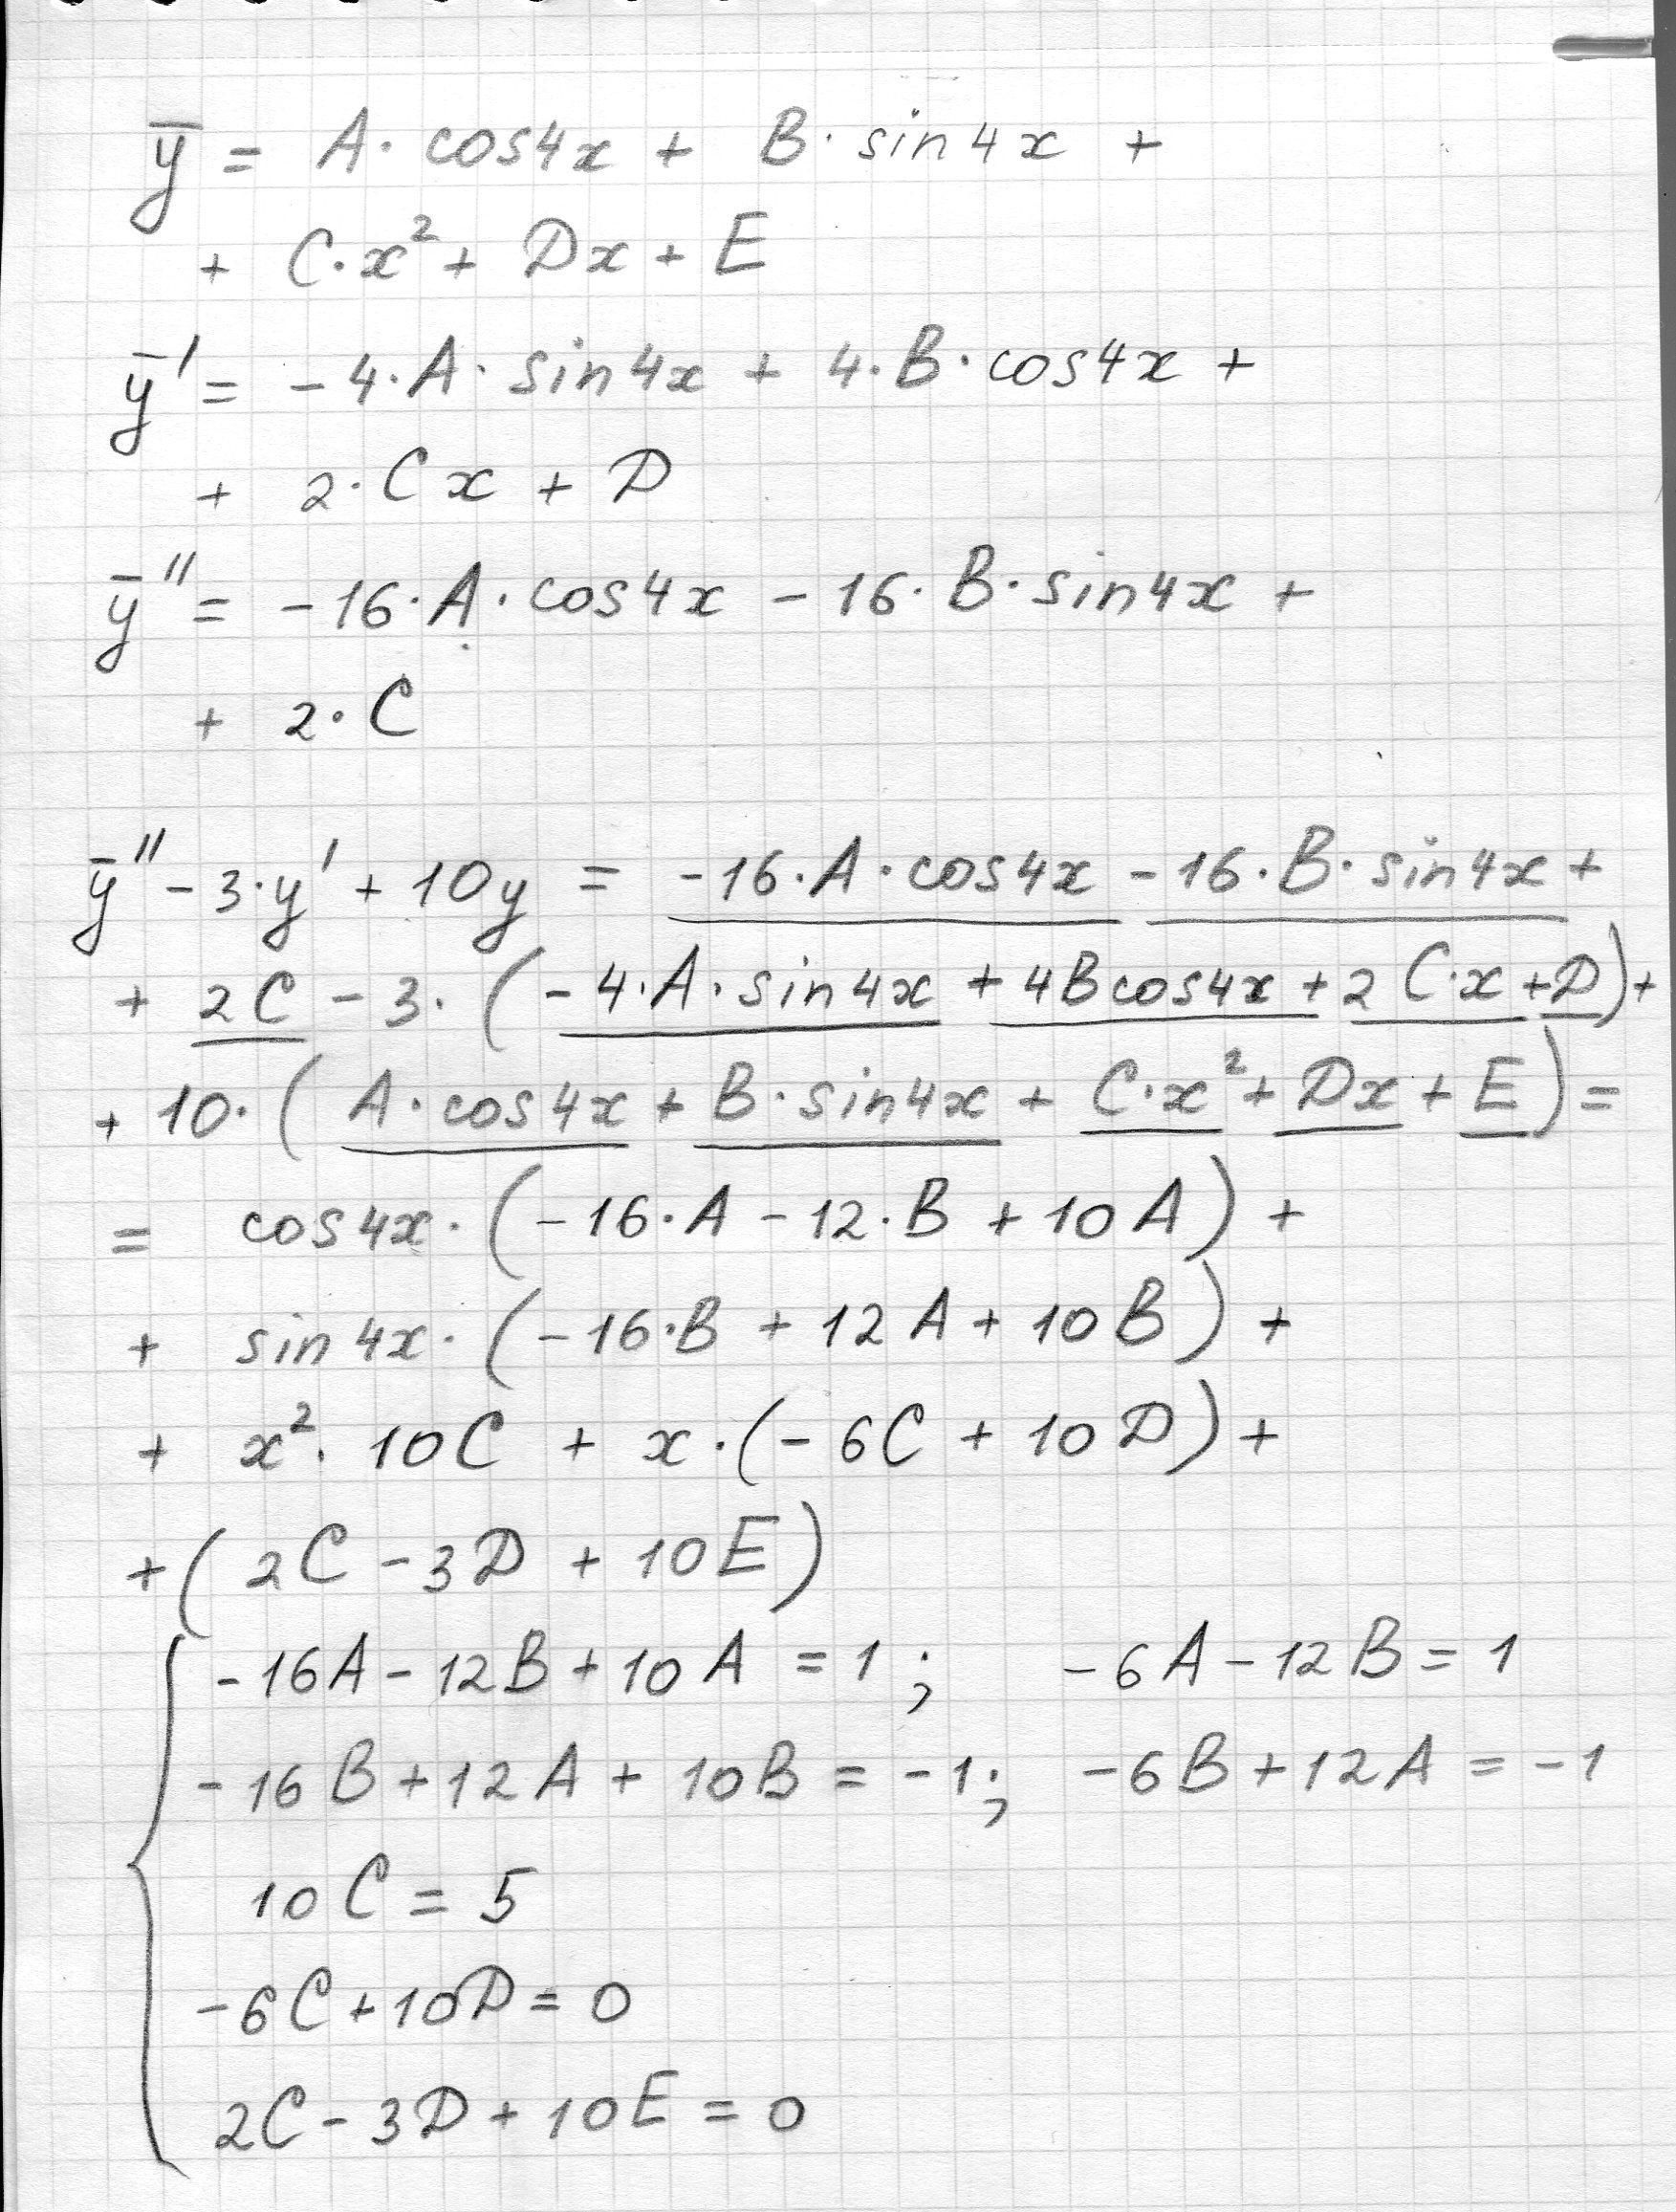 ȳ = A· cos4x + B· sin4x +
+ C·x² + Dx + E
ȳ' = -4·A· sin4x + 4·B·cos4x +
+ 2·Cx + D
ȳ'' = -16·A·cos4x - 16·B·sin4x +
+ 2·C
ȳ'' - 3·y' + 10y = -16·A·cos4x - 16·B·sin4x +
+ 2C - 3·(-4·A·sin4x + 4Bcos4x + 2C·x + D) +
+ 10·(A·cos4x + B·sin4x + C·x² + Dx + E) =
= cos4x·(-16·A - 12·B + 10A) +
+ sin4x·(-16·B + 12A + 10B) +
+ x²· 10C + x·(-6C + 10D) +
+ (2C - 3D + 10E)
-16A - 12B + 10A = 1; -6A - 12B = 1
-16B + 12A + 10B = -1; -6B + 12A = -1
10C = 5
-6C + 10D = 0
2C - 3D + 10E = 0